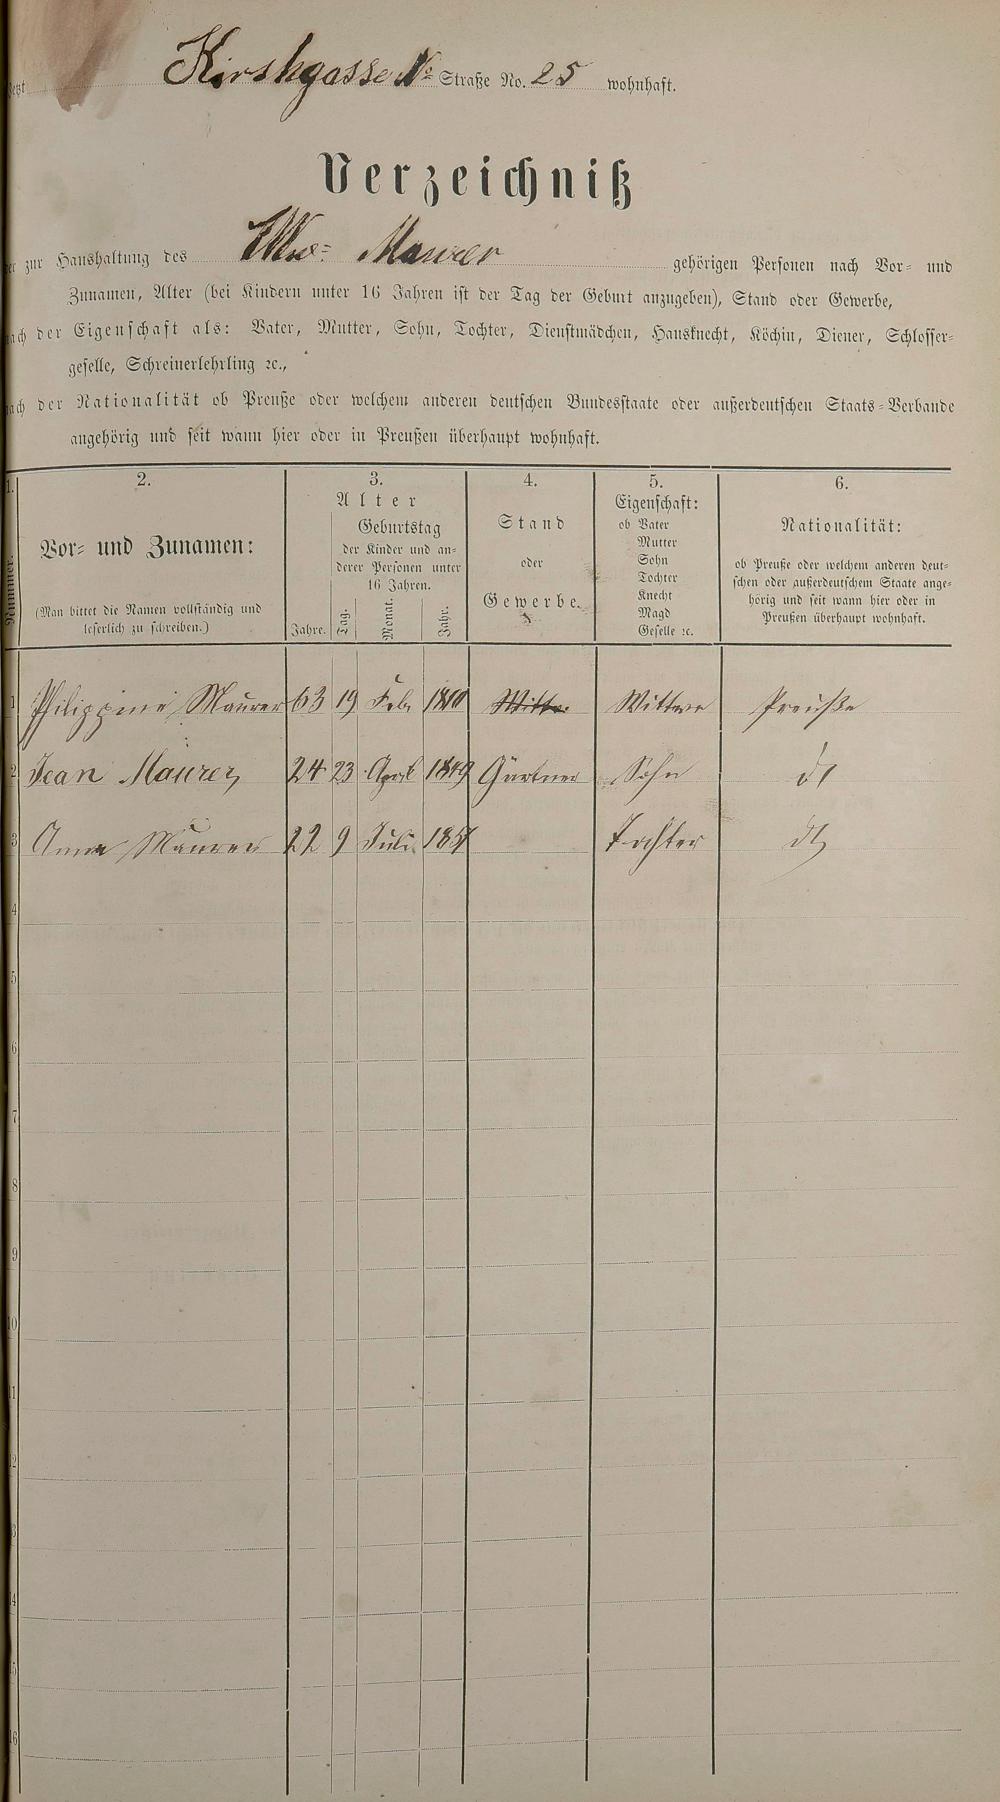 Jetzt Kirshgasse No Straße No. 25 wohnhaft.
Verzeichniß
der zur Haushaltung des Wwe: Maurer gehörigen Personen nach Vor- und
Zunamen, Alter (bei Kindern unter 16 Jahren ist der Tag der Geburt anzugeben), Stand oder Gewerbe,
nach der Eigenschaft als: Vater, Mutter, Sohn, Tochter, Dienstmädchen, Hausknecht, Köchin, Diener, Schlosser-
geselle, Schreinerlehrling ꝛc.,
nach der Nationalität ob Preuße oder welchem anderen deutschen Bundesstaate oder außerdeutschen Staats-Verbande
angehörig und seit wann hier oder in Preußen überhaupt wohnhaft.
1. 2. 3. 4. 5. 6.
Nummer.
Vor- und Zunamen:
(Man bittet die Namen vollständig und
leserlich zu schreiben.)
Alter
Jahre.
Geburtstag
der Kinder und an-
derer Personen unter
16 Jahren.
Tag. Monat. Jahr.
Stand
oder
Gewerbe.
Eigenschaft:
ob Vater
Mutter
Sohn
Tochter
Knecht
Magd
Geselle ꝛc.
Nationalität:
ob Preuße oder welchem anderen deut-
schen oder außerdeutschem Staate ange-
hörig und seit wann hier oder in
Preußen überhaupt wohnhaft.
1 Philippine Maurer 63 19 Feb. 1810 Wittwe Preuße
2 Jean Maurer 24 23 April 1849 Gärtner Sohn dt
3 Anna Maurer 22 9 Juli 1851 Tochter dt
4
5
6
7
8
9
10
11
12
13
14
15
16